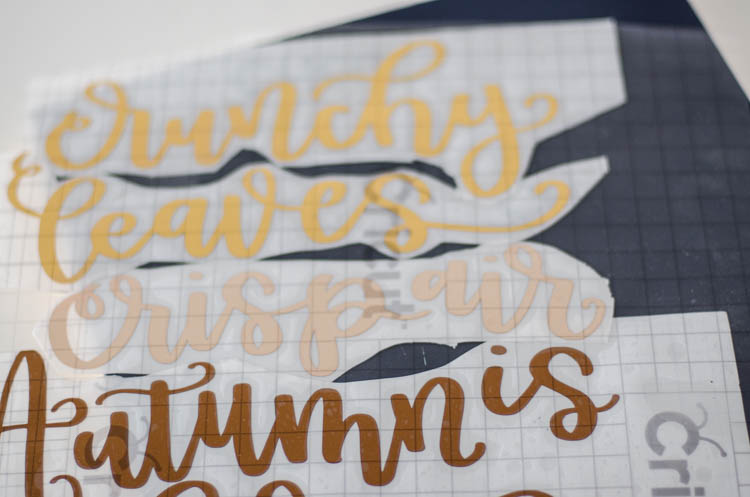 Crunchy
leaves
Crisp air
Autumn is
Cri